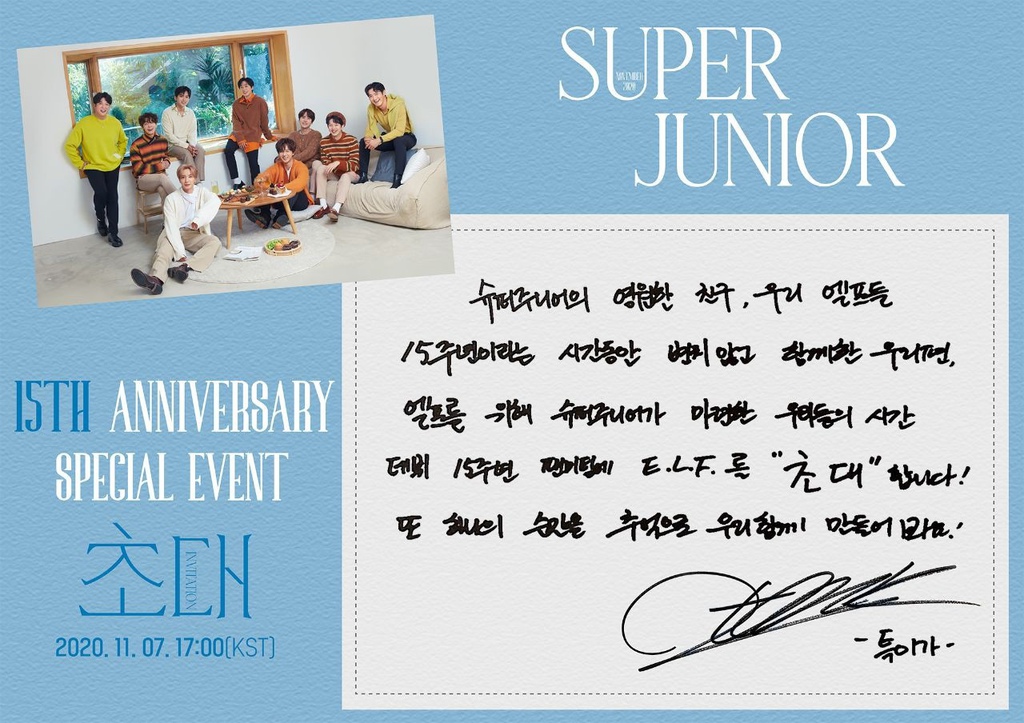 SUPER
NOVEMBER
2020
JUNIOR
슈퍼주니어의 영원한 친구, 우리 엘프들
15주년이라는 시간동안 변치 않고 함께한 우리편,
엘프를 위해 슈퍼주니어가 마련한 우리들의 시간
데뷔 15주년 팬미팅에 E.L.F.를 "초대"합니다!
또 하나의 순간을 추억으로 우리함께 만들어 봐요!
-특이가-
15TH ANNIVERSARY
SPECIAL EVENT
초대
INVITATION
2020. 11. 07. 17:00(KST)